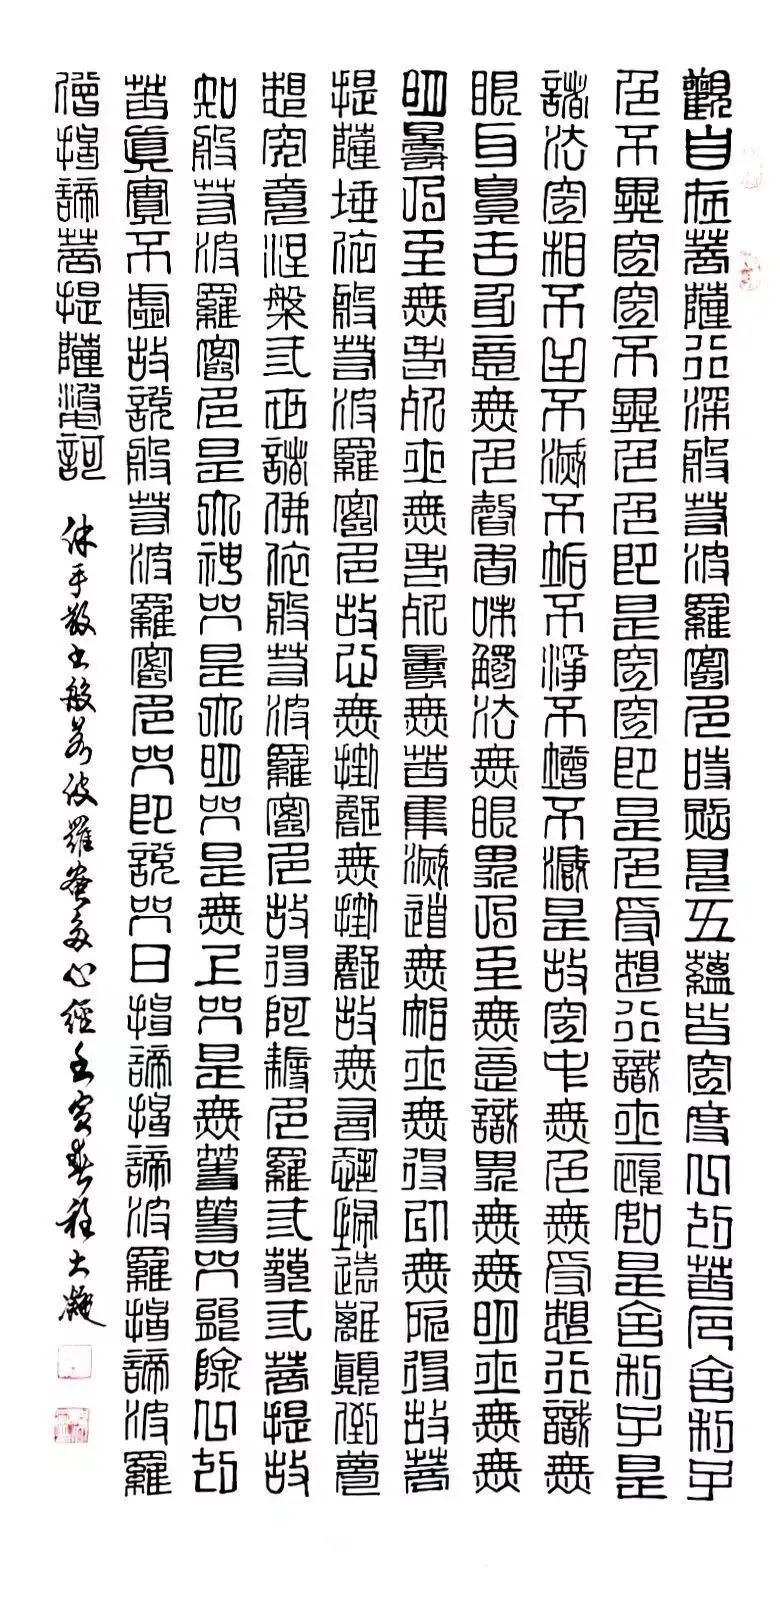 觀自在菩薩行深般若波羅蜜多時照見五蘊皆空度一切苦厄舍利子
色不異空空不異色色即是空空即是色受想行識亦復如是舍利子是
諸法空相不生不滅不垢不淨不增不減是故空中無色無受想行識無
眼耳鼻舌身意無色聲香味觸法無眼界乃至無意識界無無明亦無無
明盡乃至無老死亦無老死盡無苦集滅道無智亦無得以無所得故菩
提薩埵依般若波羅蜜多故心無掛礙無掛礙故無有恐怖遠離顛倒夢
想究竟涅槃三世諸佛依般若波羅蜜多故得阿耨多羅三藐三菩提故
知般若波羅蜜多是大神咒是大明咒是無上咒是無等等咒能除一切
苦真實不虛故說般若波羅蜜多咒即說咒曰揭諦揭諦波羅揭諦波羅
僧揭諦菩提薩婆訶
沐手敬書般若波羅蜜多心經壬寅春程大凝